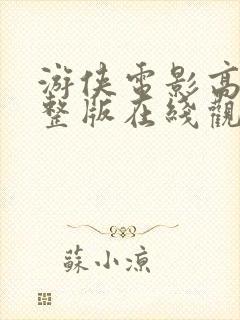 游侠電影高
整版在綫觀
蘇小涼